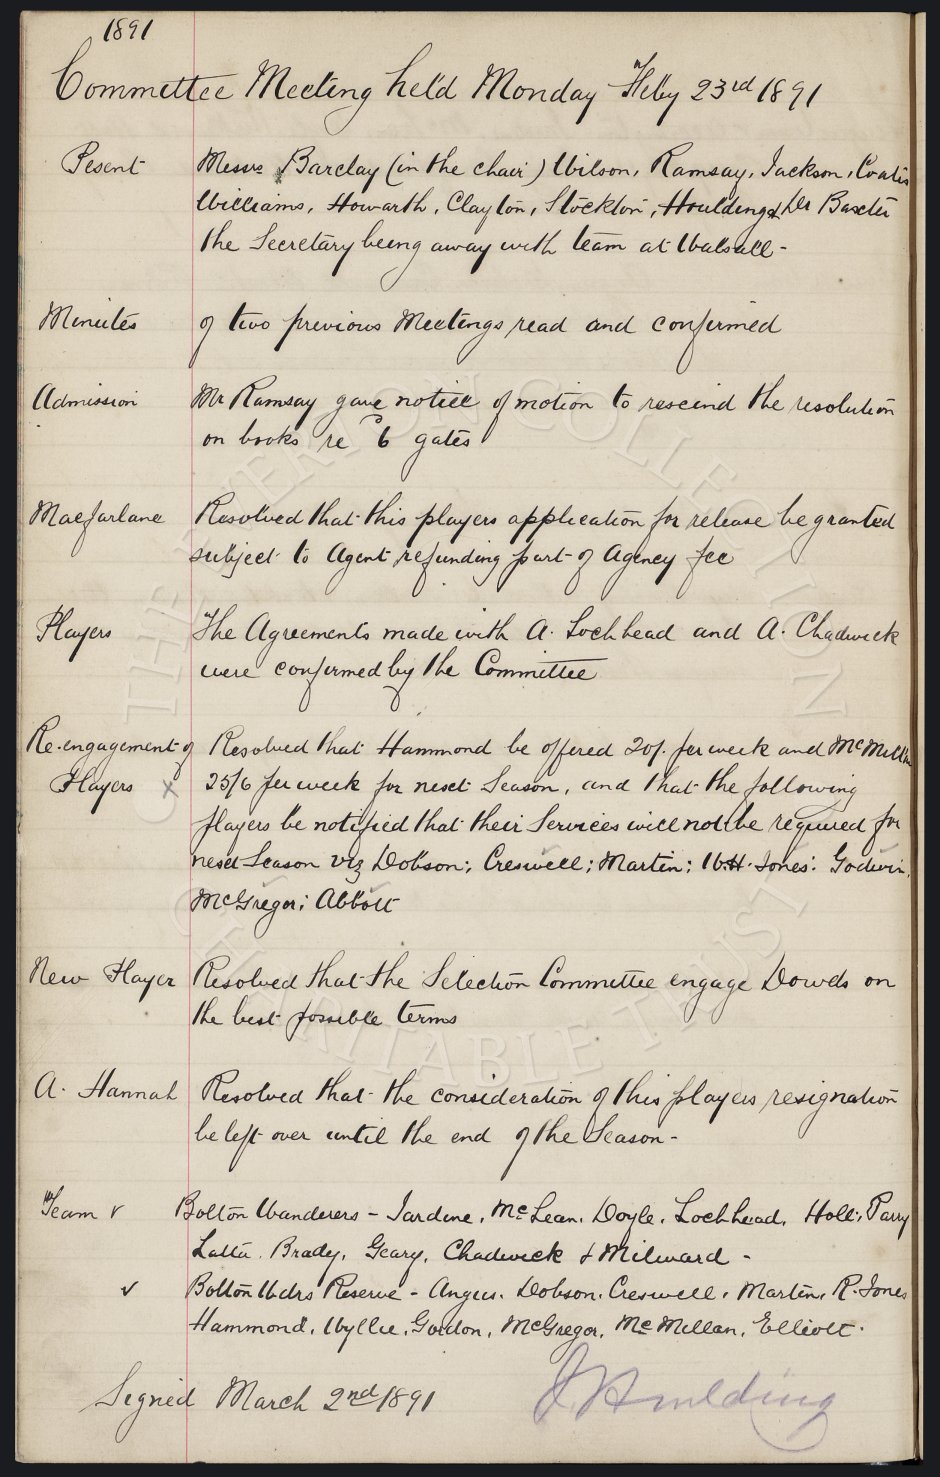 1891
Committee Meeting held Monday Feby 23rd 1891
Pesent Messrs Barclay (in the chair) Wilson, Ramsay, Jackson, Coates
Williams, Howarth, Clayton, Stockton, Houlding & Dr Baxter
the Secretary being away with team at Walsall -
Minutes of two previous Meetings read and confirmed
Admission Mr Ramsay gave notice of motion to rescind the resolution
on books re 6d gates
Macfarlane Resolved that this players application for release be granted
subject to Agent refunding part of Agency fee
Players The Agreements made with A. Lochhead and A. Chadwick
were confirmed by the Committee
Re-engagement of Resolved that Hammond be offered 20/. per week and McMillan
Players x 25/6 per week for next Season, and that the following
players be notified that their Services will not be required for
next Season viz Dobson; Creswell; Martin; W.H. Jones; Godwin,
McGregor; Abbott
New Player Resolved that the Selection Committee engage Dowds on
the best possible terms
A. Hannah Resolved that the consideration of this players resignation
be left over until the end of the Season -
Team v Bolton Wanderers - Jardine, McLean, Doyle, Lochhead, Holt, Parry
Latta, Brady, Geary, Chadwick & Milward -
v Bolton Wdrs Reserve - Angus, Dobson, Creswell, Martin, R. Jones
Hammond, Wyllie, Gordon, McGregor, McMillan, Elliott.
Signed March 2nd 1891 J. Houlding
THE EVERTON COLLECTION
CHARITABLE TRUST